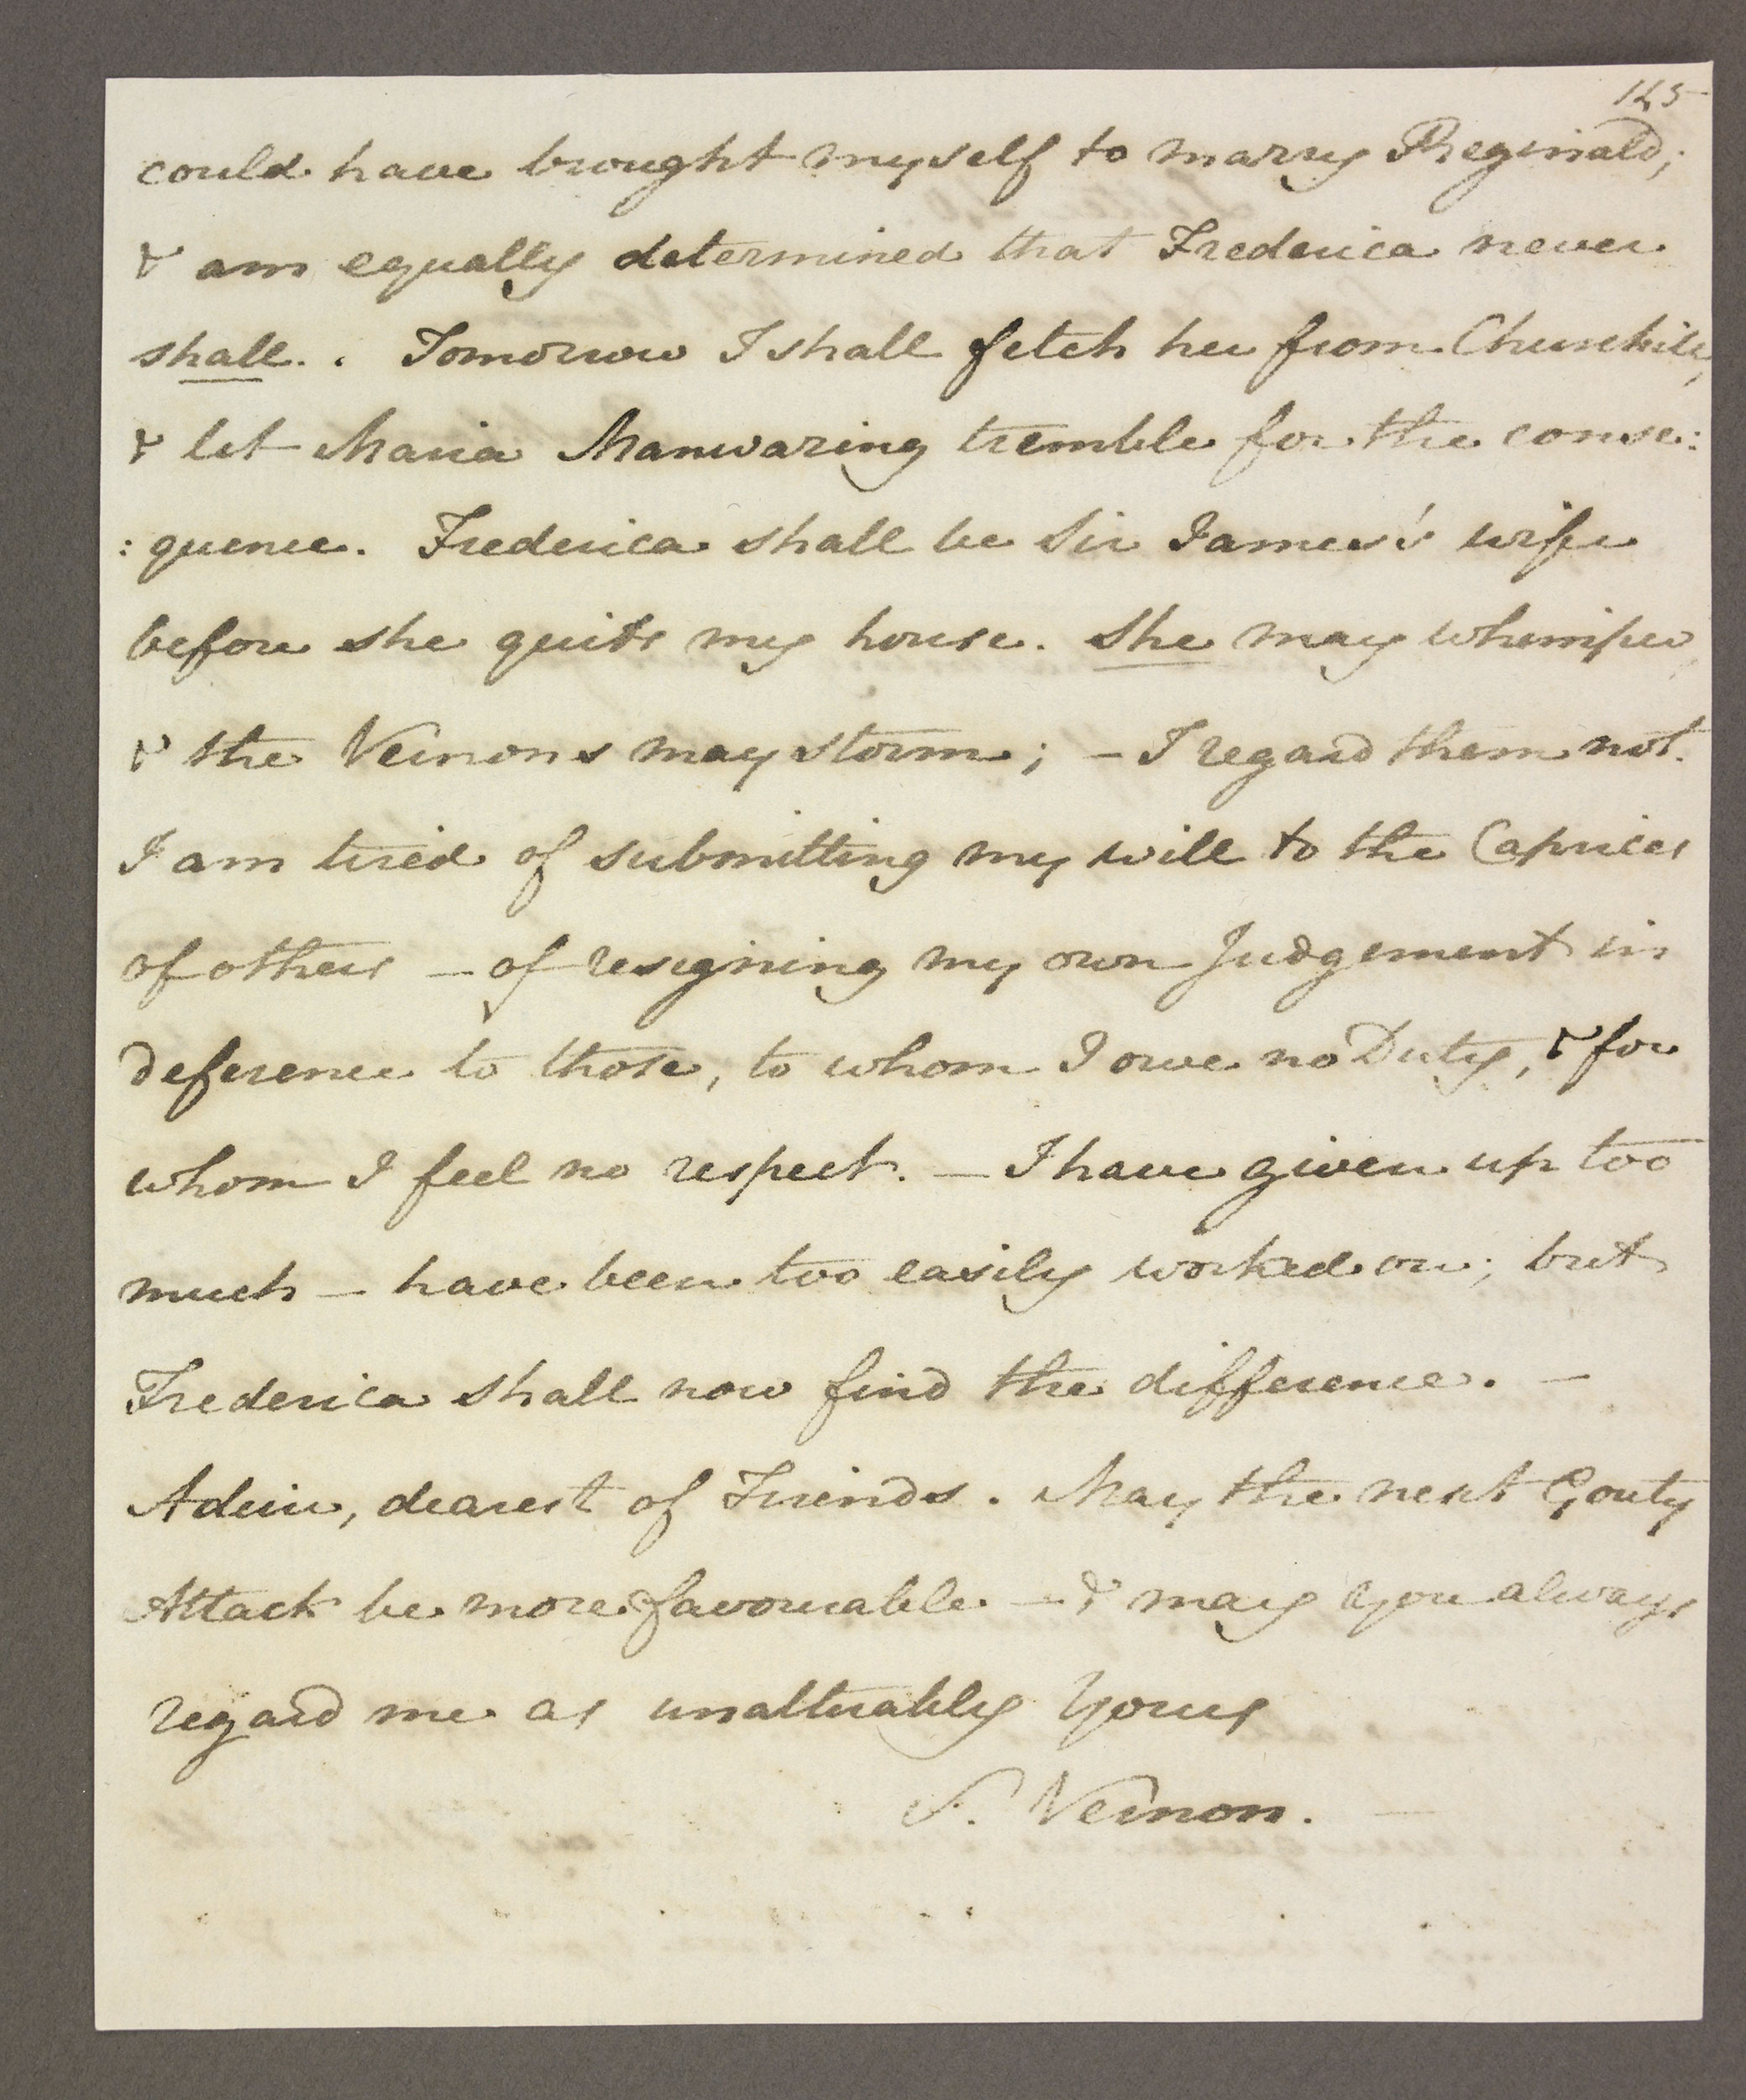 145
could have brought myself to marry Reginald;
& am equally determined that Frederica never
shall. . Tomorrow I shall fetch her from Churchill,
& let Maria Manwaring tremble for the conse:
:quence. Frederica shall be Sir James's wife
before she quits my house. She may whimper,
& the Vernons may storm; – I regard them not.
I am tired of submitting my will to the Caprices
of others – of resigning my own Judgement in
deference to those, to whom I owe no Duty, & for
whom I feel no respect. – I have given up too
much – have been too easily worked on; but
Frederica shall now find the difference. –
Adeiu, dearest of Friends. May the next Gouty
Attack be more favourable – & may you always
regard me as unalterably Yours
S. Vernon. –